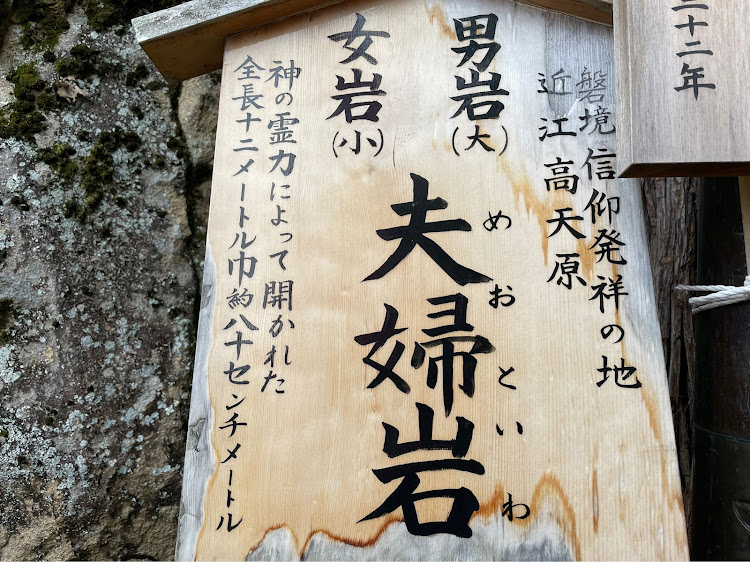 磐境信仰発祥の地
近江高天原
男岩
(大)
めおといわ
夫婦岩
女岩
(小)
神の霊力によって開かれた
全長十二メートル巾約八十センチメートル
二十二年